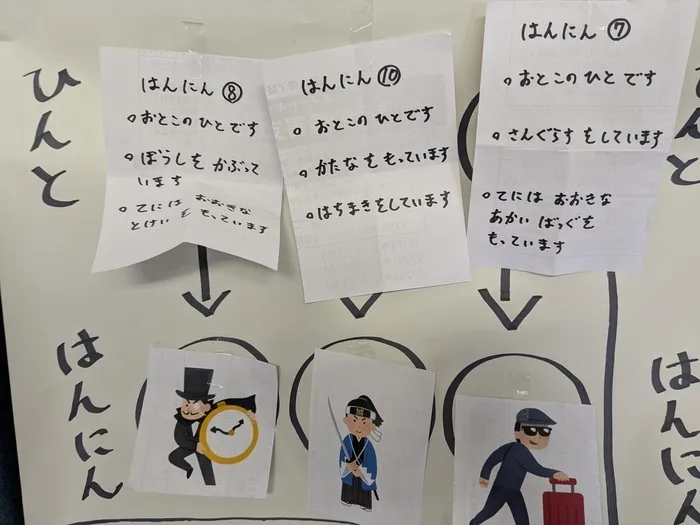 ひんと
はんにん⑧
○おとこのひとです
○ぼうしをかぶって
います
○てには おおきな
とけい を もっています
はんにん⑩
○ おとこのひとです
○ かたなをもっています
○はちまきをしています
はんにん ⑦
○おとこのひとです
○さんぐらすをしています
○てには おおきな
あかい ばっぐを
もっています
んと
はんにん
はんにん